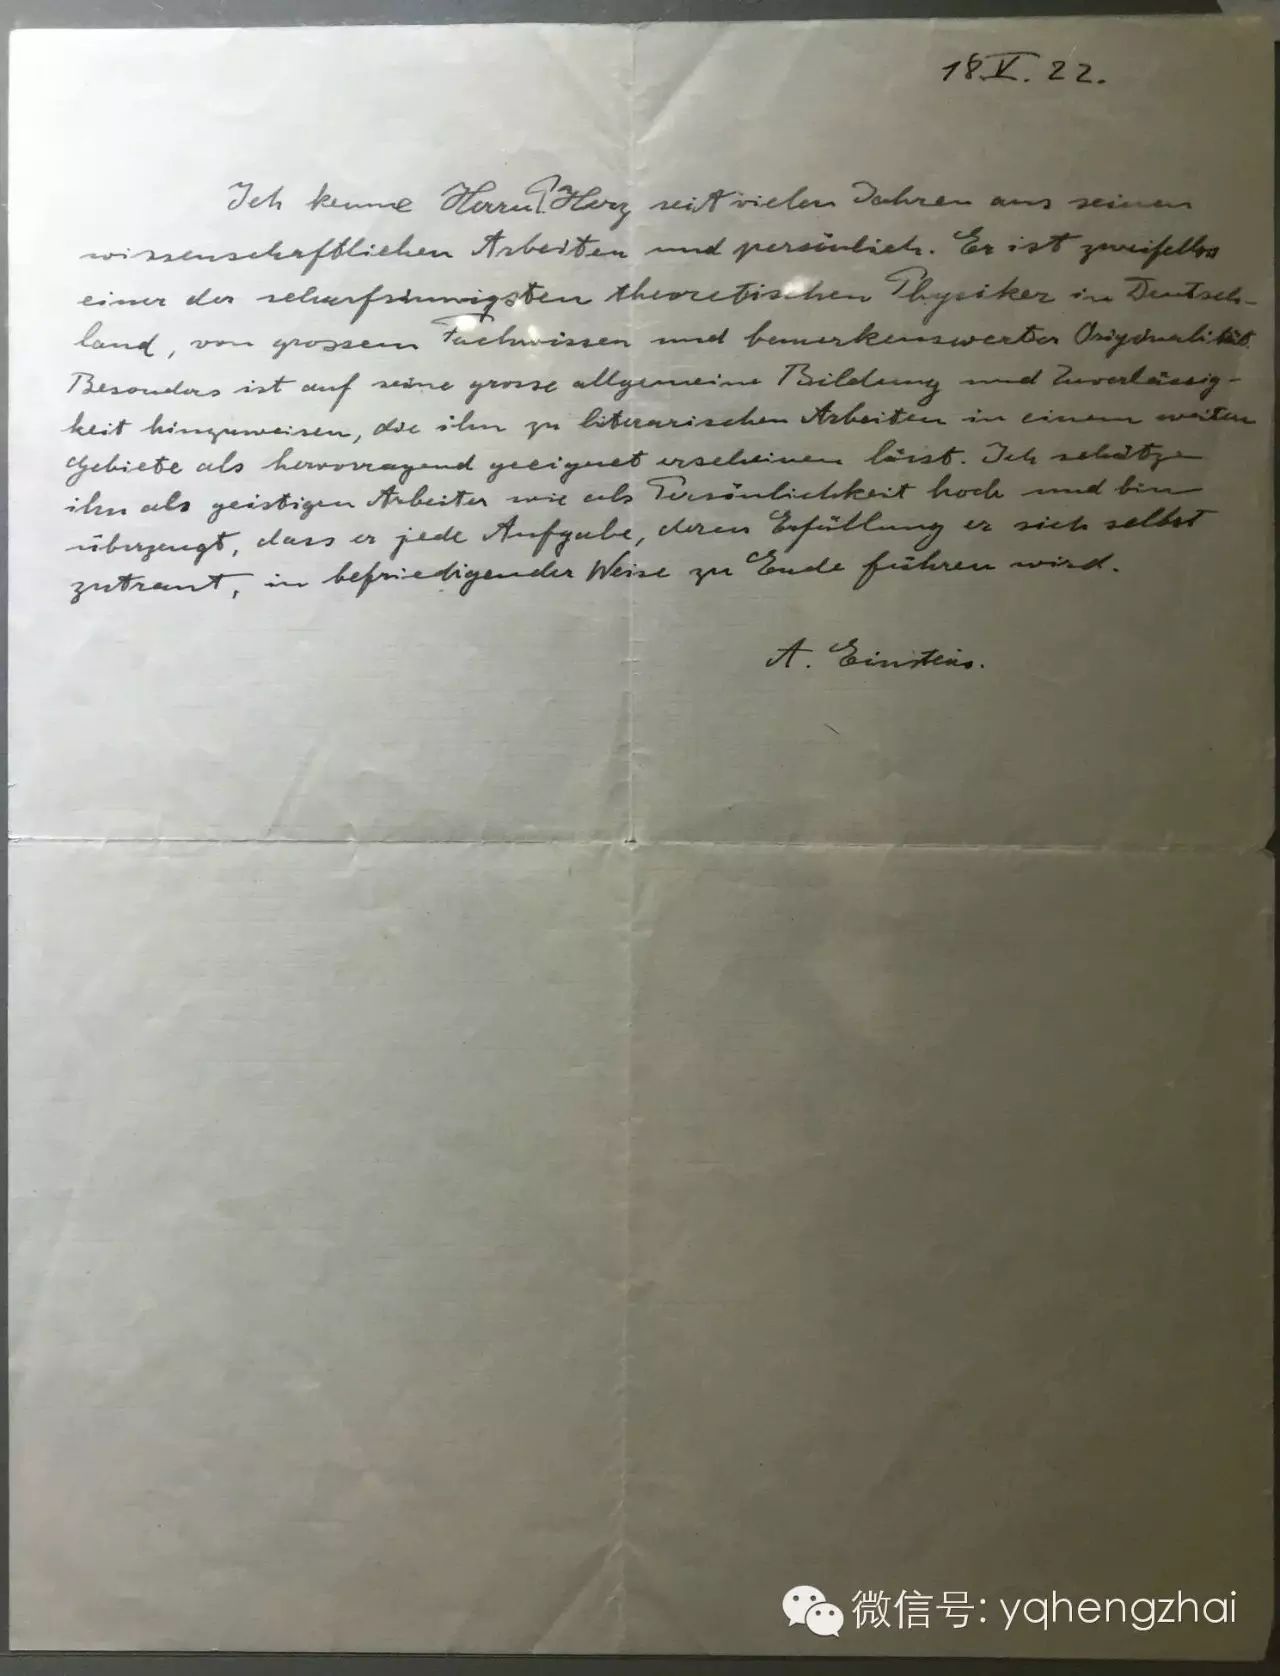 18.V.22.
Ich kenne Herrn P. Herz seit vielen Jahren aus seinen
wissenschaftlichen Arbeiten und persönlich. Er ist zweifellos
einer der scharfsinnigsten theoretischen Physiker in Deutsch-
land, von grossem Fachwissen und bemerkenswerter Originalität.
Besonders ist auf seine grosse allgemeine Bildung und Zuverlässig-
keit hinzuweisen, die ihn zu literarischen Arbeiten in einem weiten
Gebiete als hervorragend geeignet erscheinen lässt. Ich schätze
ihn als geistigen Arbeiter wie als Persönlichkeit hoch und bin
überzeugt, dass er jede Aufgabe, deren Erfüllung er sich selbst
zutraut, in befriedigender Weise zu Ende führen wird.
A. Einstein.
微信号: yqhengzhai